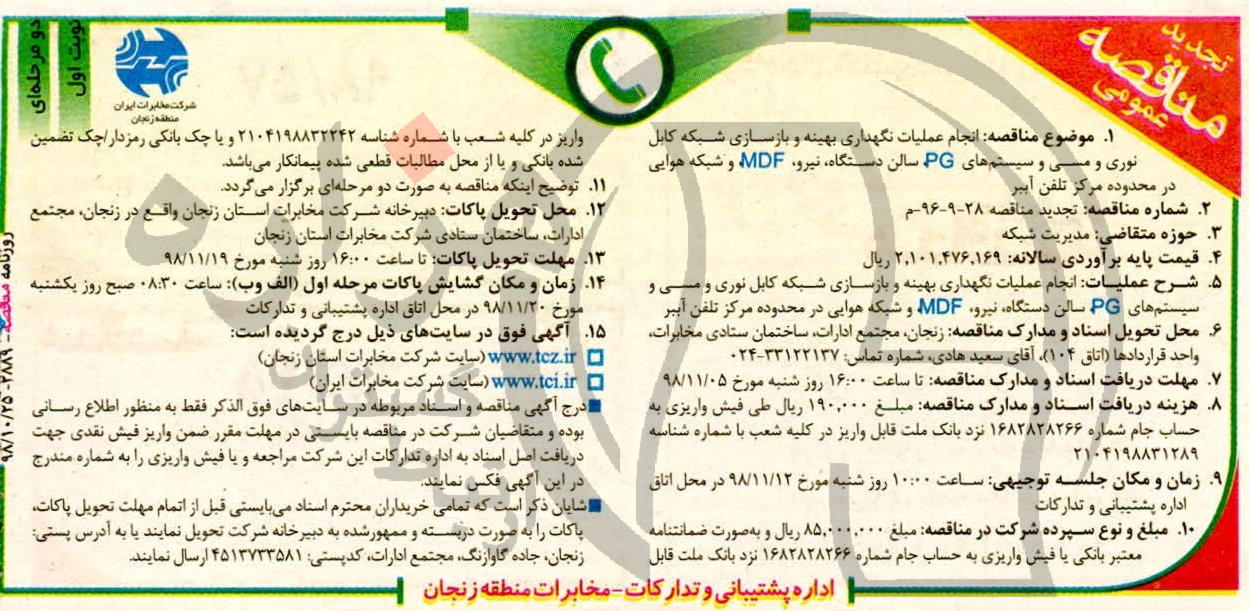 تجدید
مناقصه
عمومی
نوبت اول
دو مرحله‌ای
شرکت مخابرات ایران
منطقه زنجان
۱. موضوع مناقصه: انجام عملیات نگهداری بهینه و بازسازی شبکه کابل
نوری و مسی و سیستم‌های PG، سالن دستگاه، نیرو، MDF و شبکه هوایی
در محدوده مرکز تلفن آببر
۲. شماره مناقصه: تجدید مناقصه ۲۸-۹-۹۶-م
۳. حوزه متقاضی: مدیریت شبکه
۴. قیمت پایه برآوردی سالانه: ۲,۱۰۱,۴۷۶,۱۶۹ ریال
۵. شرح عملیات: انجام عملیات نگهداری بهینه و بازسازی شبکه کابل نوری و مسی و
سیستم‌های PG، سالن دستگاه، نیرو، MDF و شبکه هوایی در محدوده مرکز تلفن آببر
۶. محل تحویل اسناد و مدارک مناقصه: زنجان، مجتمع ادارات، ساختمان ستادی مخابرات،
واحد قراردادها (اتاق ۱۰۴)، آقای سعید هادی، شماره تماس: ۳۳۱۲۲۱۳۷-۰۲۴
۷. مهلت دریافت اسناد و مدارک مناقصه: تا ساعت ۱۶:۰۰ روز شنبه مورخ ۹۸/۱۱/۰۵
۸. هزینه دریافت اسناد و مدارک مناقصه: مبلغ ۱۹۰,۰۰۰ ریال طی فیش واریزی به
حساب جام شماره ۱۶۸۲۸۲۸۲۶۶ نزد بانک ملت قابل واریز در کلیه شعب با شماره شناسه
۲۱۰۴۱۹۸۸۳۱۲۸۹
۹. زمان و مکان جلسه توجیهی: ساعت ۱۰:۰۰ روز شنبه مورخ ۹۸/۱۱/۱۲ در محل اتاق
اداره پشتیبانی و تدارکات
۱۰. مبلغ و نوع سپرده شرکت در مناقصه: مبلغ ۸۵,۰۰۰,۰۰۰ ریال و به‌صورت ضمانتنامه
معتبر بانکی یا فیش واریزی به حساب جام شماره ۱۶۸۲۸۲۸۲۶۶ نزد بانک ملت قابل
واریز در کلیه شعب با شماره شناسه ۲۱۰۴۱۹۸۸۳۲۲۴۲ و یا چک بانکی رمزدار/چک تضمین
شده بانکی و یا از محل مطالبات قطعی شده پیمانکار می‌باشد.
۱۱. توضیح اینکه مناقصه به صورت دو مرحله‌ای برگزار می‌گردد.
۱۲. محل تحویل پاکات: دبیرخانه شرکت مخابرات استان زنجان واقع در زنجان، مجتمع
ادارات، ساختمان ستادی شرکت مخابرات استان زنجان
۱۳. مهلت تحویل پاکات: تا ساعت ۱۶:۰۰ روز شنبه مورخ ۹۸/۱۱/۱۹
۱۴. زمان و مکان گشایش پاکات مرحله اول (الف وب): ساعت ۰۸:۳۰ صبح روز یکشنبه
مورخ ۹۸/۱۱/۲۰ در محل اتاق اداره پشتیبانی و تدارکات
۱۵. آگهی فوق در سایت‌های ذیل درج گردیده است:
www.tcz.ir (سایت شرکت مخابرات استان زنجان)
www.tci.ir (سایت شرکت مخابرات ایران)
درج آگهی مناقصه و اسناد مربوطه در سایت‌های فوق الذکر فقط به منظور اطلاع رسانی
بوده و متقاضیان شرکت در مناقصه بایستی در مهلت مقرر ضمن واریز فیش نقدی جهت
دریافت اصل اسناد به اداره تدارکات این شرکت مراجعه و یا فیش واریزی را به شماره مندرج
در این آگهی فکس نمایند.
شایان ذکر است که تمامی خریداران محترم اسناد می‌بایستی قبل از اتمام مهلت تحویل پاکات،
پاکات را به صورت دربسته و ممهورشده به دبیرخانه شرکت تحویل نمایند یا به آدرس پستی:
زنجان، جاده گاوازنگ، مجتمع ادارات، کدپستی: ۴۵۱۳۷۳۳۵۸۱ ارسال نمایند.
اداره پشتیبانی و تدارکات-مخابرات منطقه زنجان
روزنامه مناقصه - ۲۸۸۹-۹۸/۱۰/۲۵